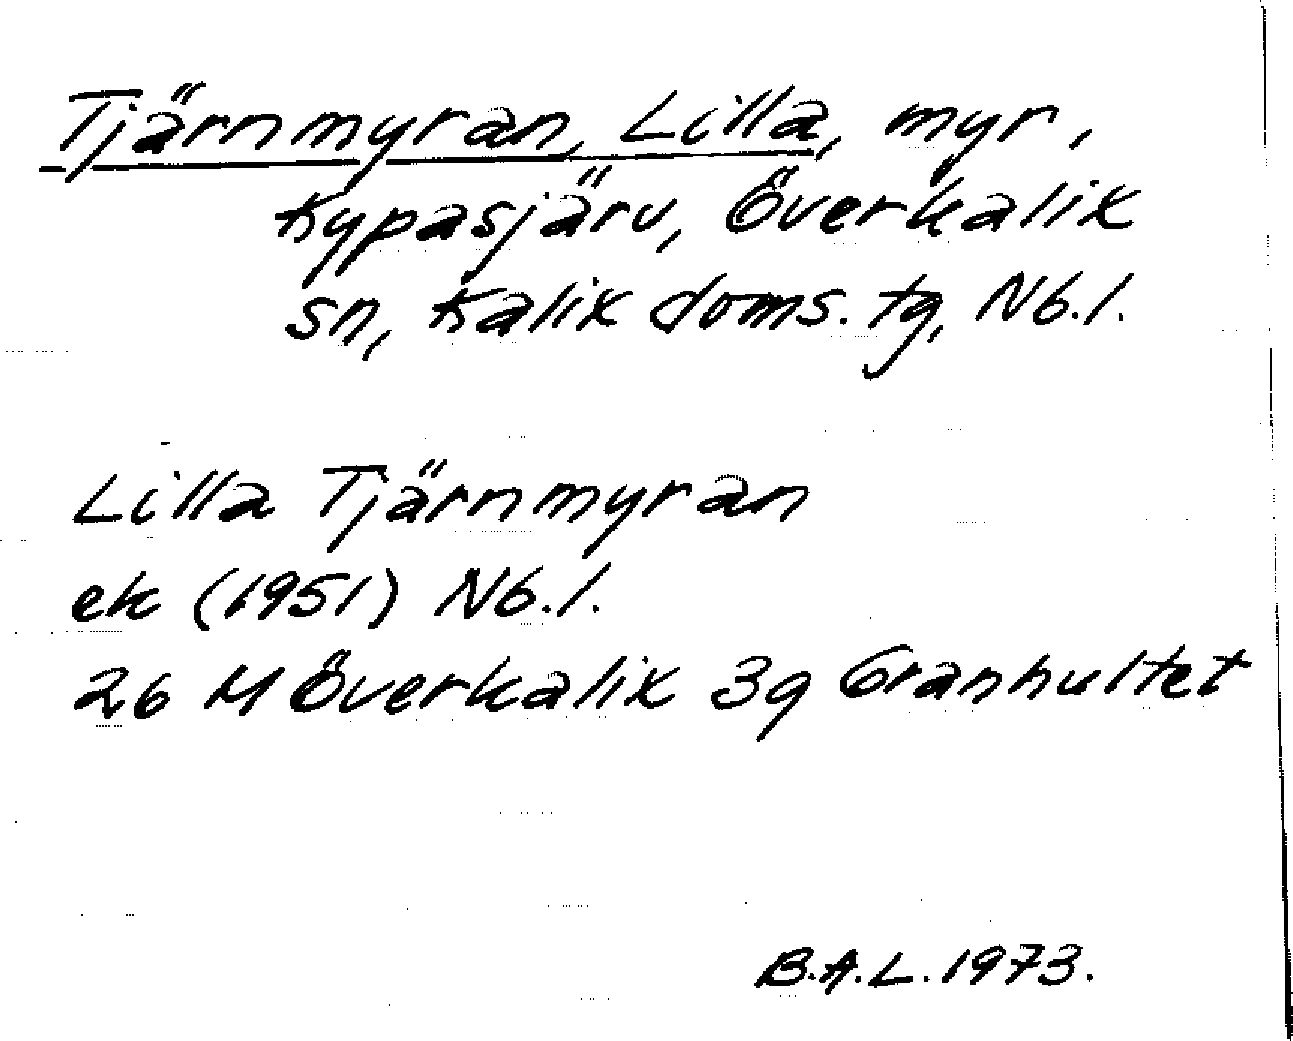 Tjärnmyran, Lilla, myr,
Kypasjärv, Överkalix
sn, Kalix doms. tg, Nb.l.
Lilla Tjärnmyran
ek (1951) Nb.l.
26 M Överkalix 3g Granhultet
B.A.L. 1973.